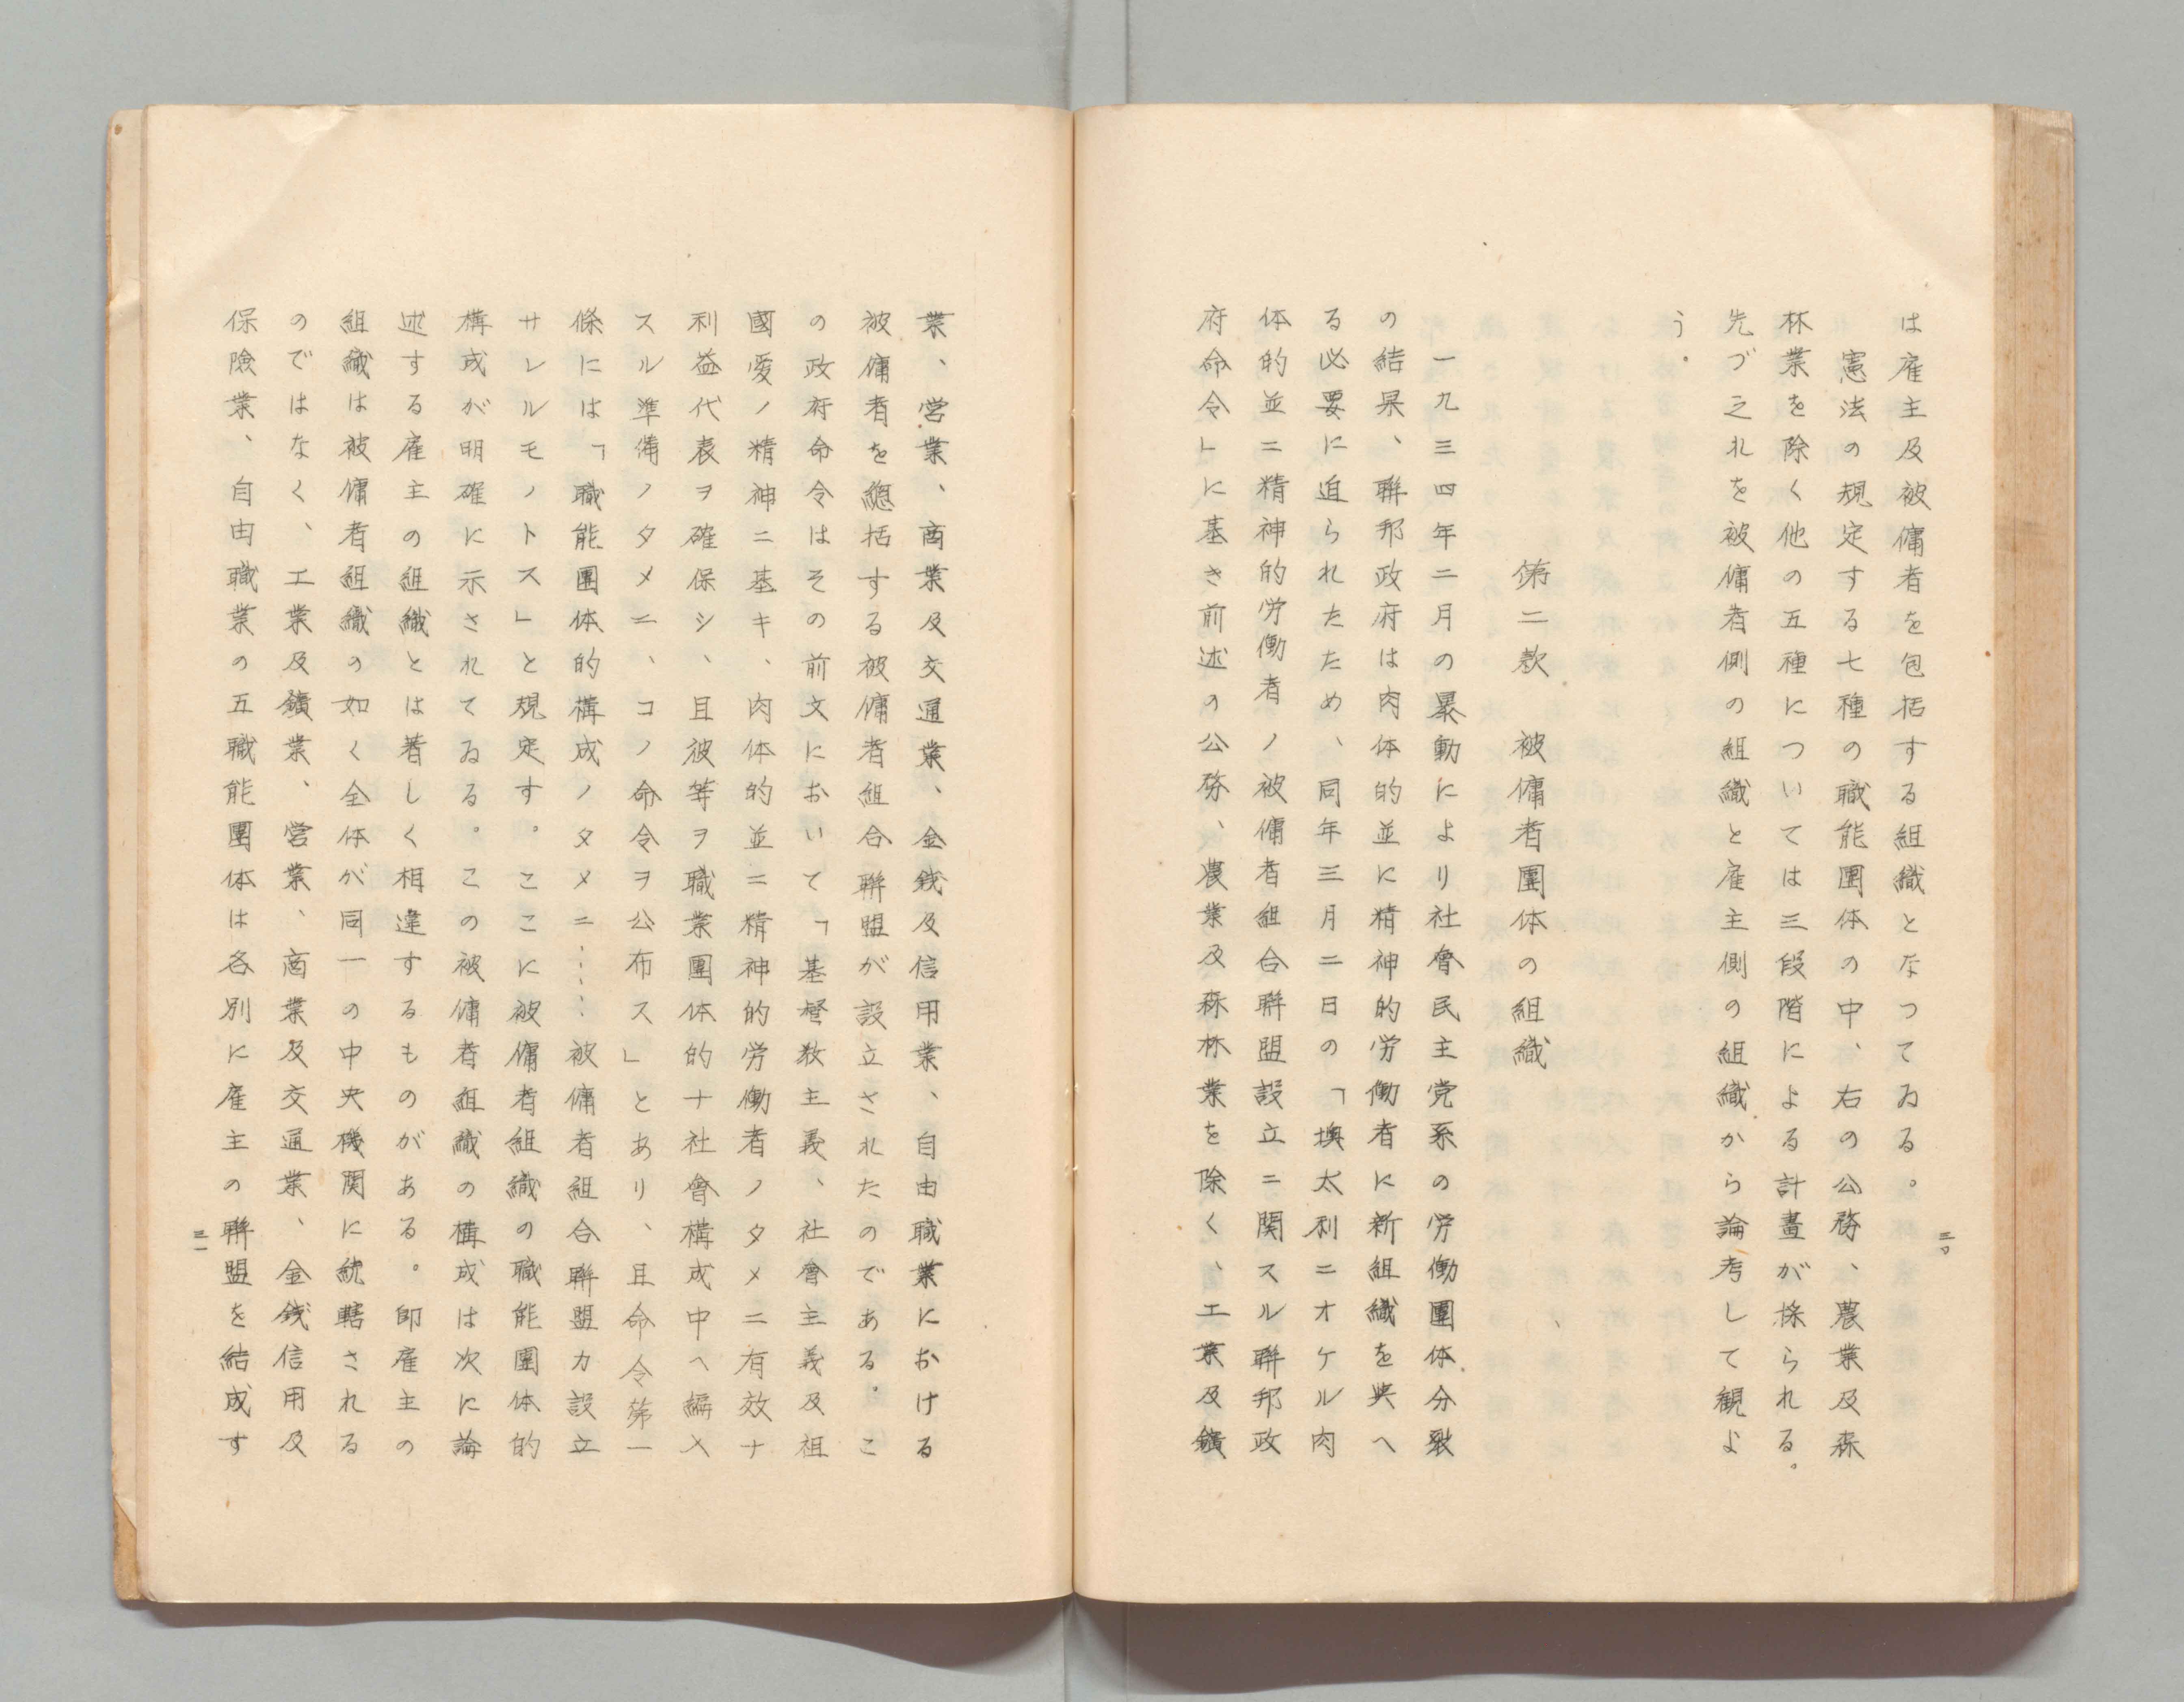 は雇主及被傭者を包括する組織となつてゐる。
憲法の規定する七種の職能團体の中、右の公務、農業及森
林業を除く他の五種については三段階による計畫が採られる。
先づ之れを被傭者側の組織と雇主側の組織から論考して観よ
う。
第二款　被傭者團体の組織
一九三四年二月の暴動により社會民主党系の労働團体分裂
の結果、聯邦政府は肉体的並に精神的労働者に新組織を與へ
る必要に迫られたため、同年三月二日の「墺太利ニオケル肉
体的並ニ精神的労働者ノ被傭者組合聯盟設立ニ関スル聯邦政
府命令」に基き前述の公務、農業及森林業を除く、工業及鑛
三〇
業、営業、商業及交通業、金銭及信用業、自由職業における
被傭者を總括する被傭者組合聯盟が設立されたのである。こ
の政府命令はその前文において「基督教主義、社會主義及祖
國愛ノ精神ニ基キ、肉体的並ニ精神的労働者ノタメニ有效ナ
利益代表ヲ確保シ、且彼等ヲ職業團体的ナ社會構成中ヘ編入
スル準備ノタメニ、コノ命令ヲ公布ス」とあり、且命令第一
條には「職能團体的構成ノタメニ‥‥被傭者組合聯盟カ設立
サレルモノトス」と規定す。ここに被傭者組織の職能團体的
構成が明確に示されてゐる。この被傭者組織の構成は次に論
述する雇主の組織とは著しく相違するものがある。即雇主の
組織は被傭者組織の如く全体が同一の中央機関に統轄される
のではなく、工業及鑛業、営業、商業及交通業、金銭信用及
保險業、自由職業の五職能團体は各別に雇主の聯盟を結成す
三一